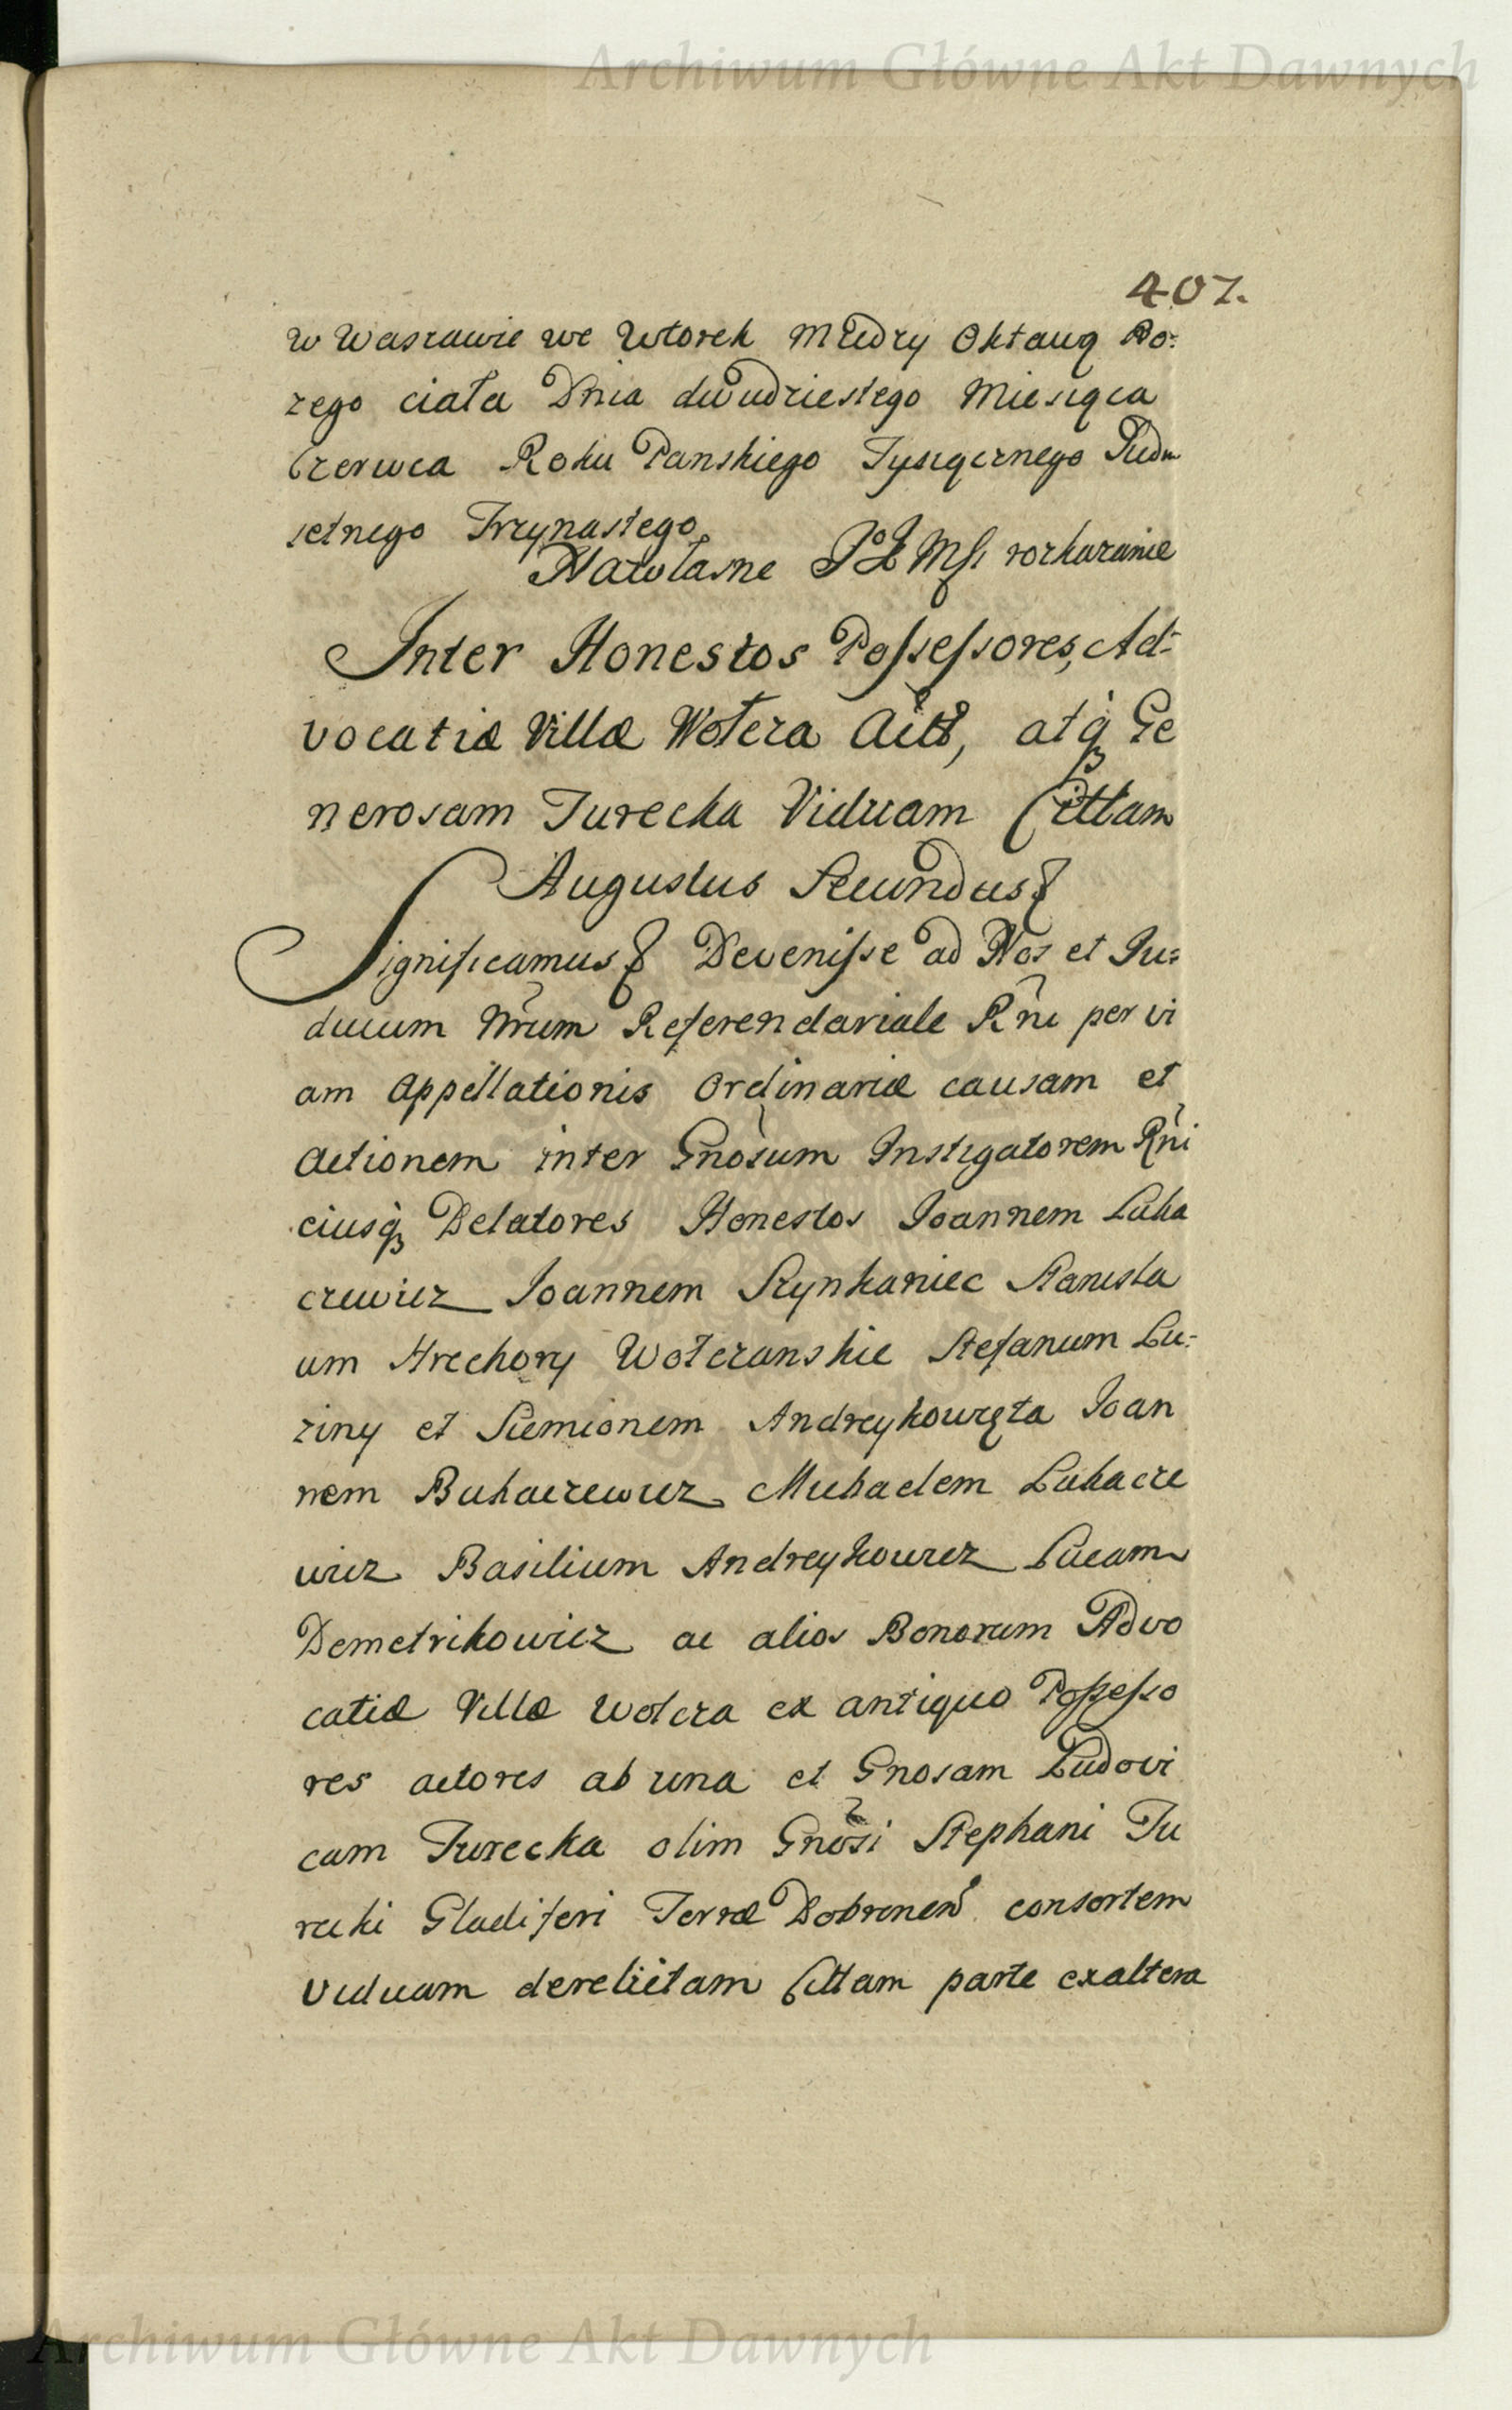 Archiwum Główne Akt Dawnych
407.
w Waszawie we Wtorek między Oktawą Bo:
zego ciała Dnia dwudziestego Miesiąca
Czerwca Roku Panskiego Tysiącznego Siedm
setnego Trzynastego
Nawłasne JKMsci rozkazanie
Inter Honestos Possessores, Ad=
vocatiæ Villæ Wołcza, atq Ge
nerosam Turecka Viduam Cittam
Augustus Secundus
Significamus Devenisse ad Nos et Ju=
dicium Nrum Referendariale Rni per vi
am Appellationis Ordinariæ causam et
Actionem inter Gnosum Instigatorem Rni
eiusq Delatores Honestos Joannem Luka
czewicz Joannem Szynkaniec Stanisla
um Hrechory Wołczanskie Stefanum Lu=
ziny et Siemionem Andreykowięta Joan
nem Buhaczewicz Michaelem Lukacze
wicz Basilium Andreykowicz Lucam
Demetrikowicz ac alios Bonorum Advo
catiæ Villæ Wolcza ex antiquo Possesso
res actores ab una et Gnosam Ludovi
cam Turecka olim Gnosi Stephani Tu
recki Gladiferi Terræ Dobrinen consortem
Viduam derelictam Cittam parte exaltera
Archiwum Główne Akt Dawnych